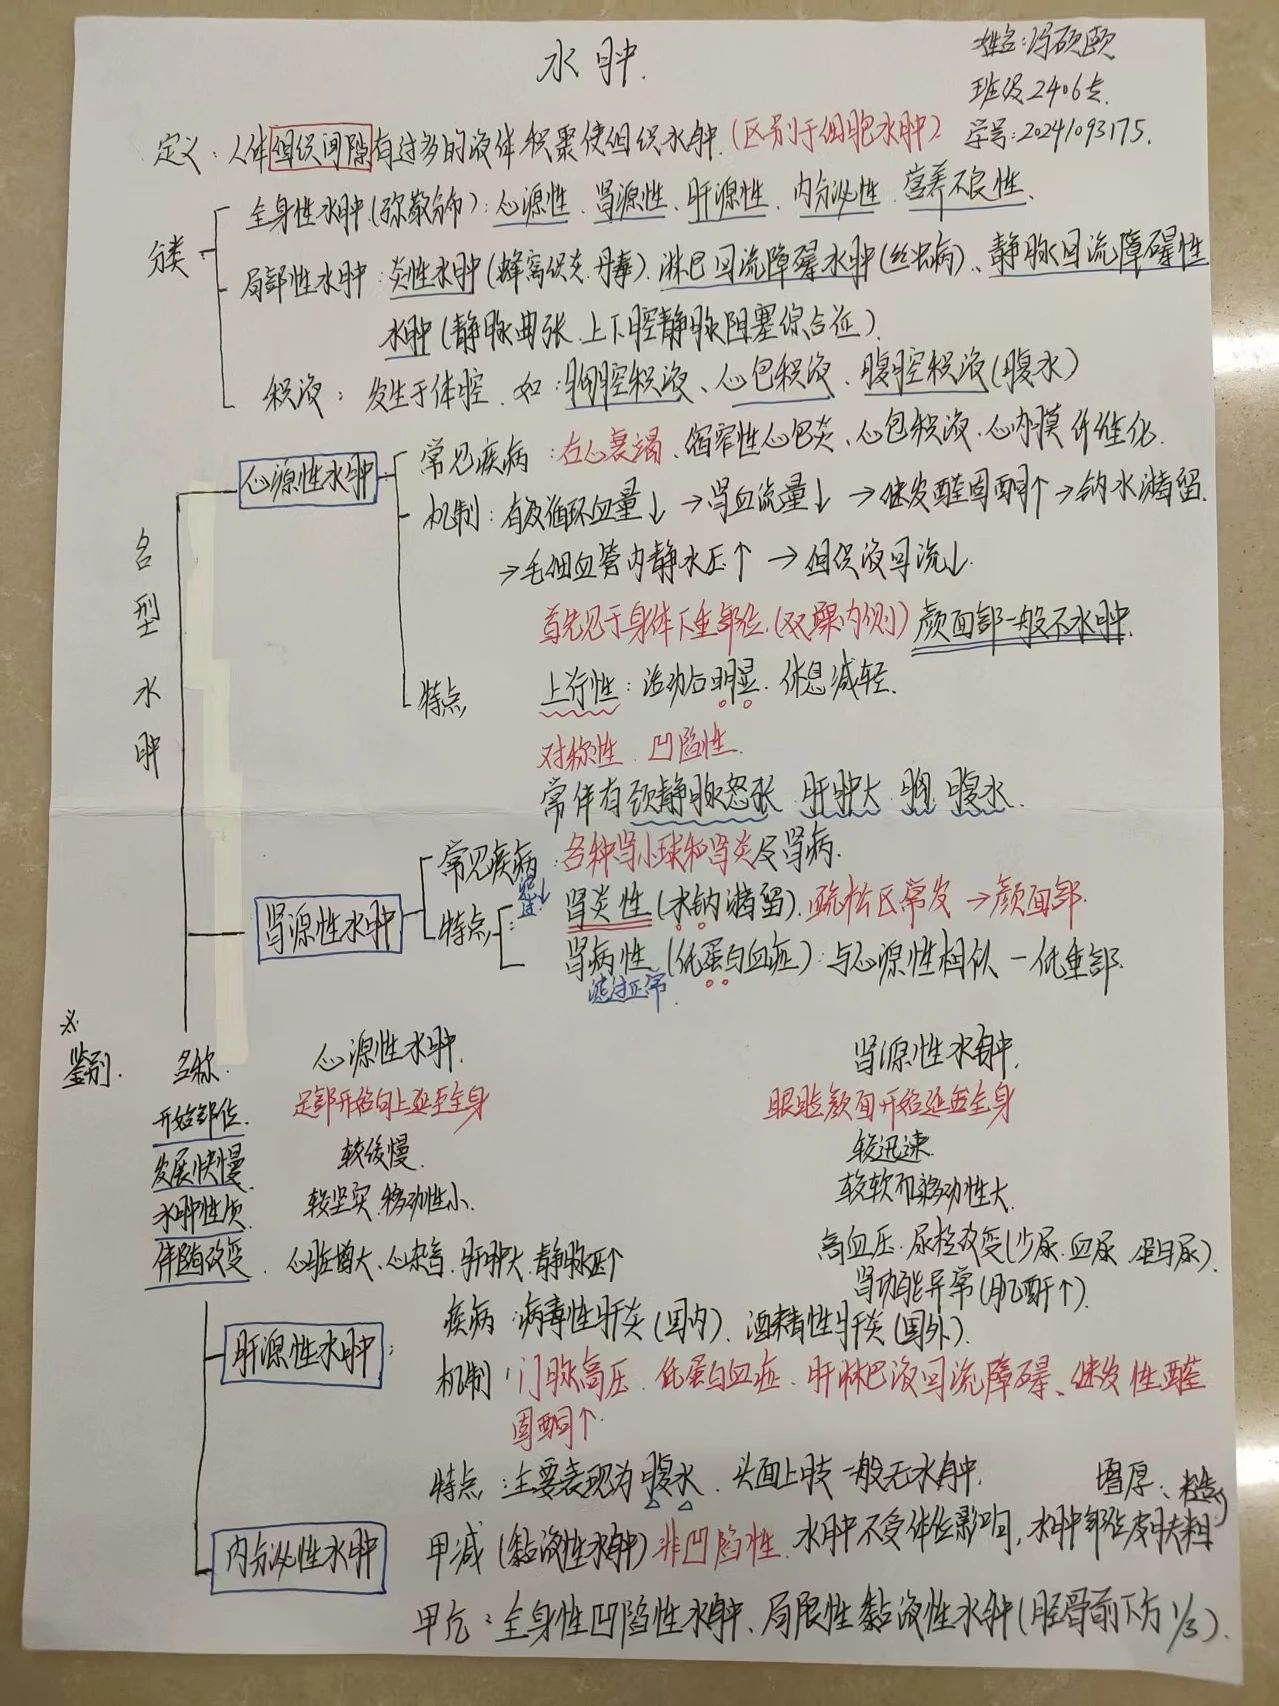 水肿.
姓名:冯硕颐
班级2406专.
学号:20241093175.
定义:人体组织间隙有过多的液体积聚使组织水肿.(区别于细胞水肿)
分类
全身性水肿(弥散分布):心源性、肾源性、肝源性、内分泌性、营养不良性.
局部性水肿:炎性水肿(蜂窝织炎、丹毒).淋巴回流障碍水肿(丝虫病)、静脉回流障碍性
水肿(静脉曲张、上下腔静脉阻塞综合征).
积液:发生于体腔.如:胸腔积液、心包积液、腹腔积液(腹水)
各型水肿
心源性水肿
常见疾病:右心衰竭、缩窄性心包炎、心包积液、心内膜纤维化.
机制:有效循环血量↓→肾血流量↓→继发醛固酮↑→钠水潴留.
→毛细血管内静水压↑→组织液回流↓.
特点
首先见于身体下垂部位.(双踝内侧)颜面部一般不水肿.
上行性:活动后明显.休息减轻.
对称性.凹陷性.
常伴有颈静脉怒张.肝肿大.胸.腹水.
肾源性水肿
常见疾病:各种肾小球和肾炎及肾病.
特点:
滤过↓
肾炎性(水钠潴留).疏松区常发→颜面部.
肾病性(低蛋白血症):与心源性相似—低垂部.
滤过正常.
※
鉴别. 名称. 心源性水肿. 肾源性水肿.
开始部位. 足部开始向上延至全身 眼睑颜面开始延至全身
发展快慢. 较缓慢. 较迅速.
水肿性质. 较坚实.移动性小. 较软而移动性大.
伴随改变. 心脏增大、心杂音.肝肿大.静脉压↑ 高血压.尿检改变(少尿.血尿.蛋白尿).
肾功能异常(肌酐↑).
肝源性水肿:
疾病:病毒性肝炎(国内).酒精性肝炎(国外).
机制:门脉高压.低蛋白血症.肝淋巴液回流障碍、继发性醛
固酮↑
特点:主要表现为腹水.头面上肢一般无水肿.
内分泌性水肿
甲减(黏液性水肿)非凹陷性.水肿不受体位影响,水肿部位皮肤粗
增厚、糙
甲亢:全身性凹陷性水肿、局限性黏液性水肿(胫骨前下方1/3).